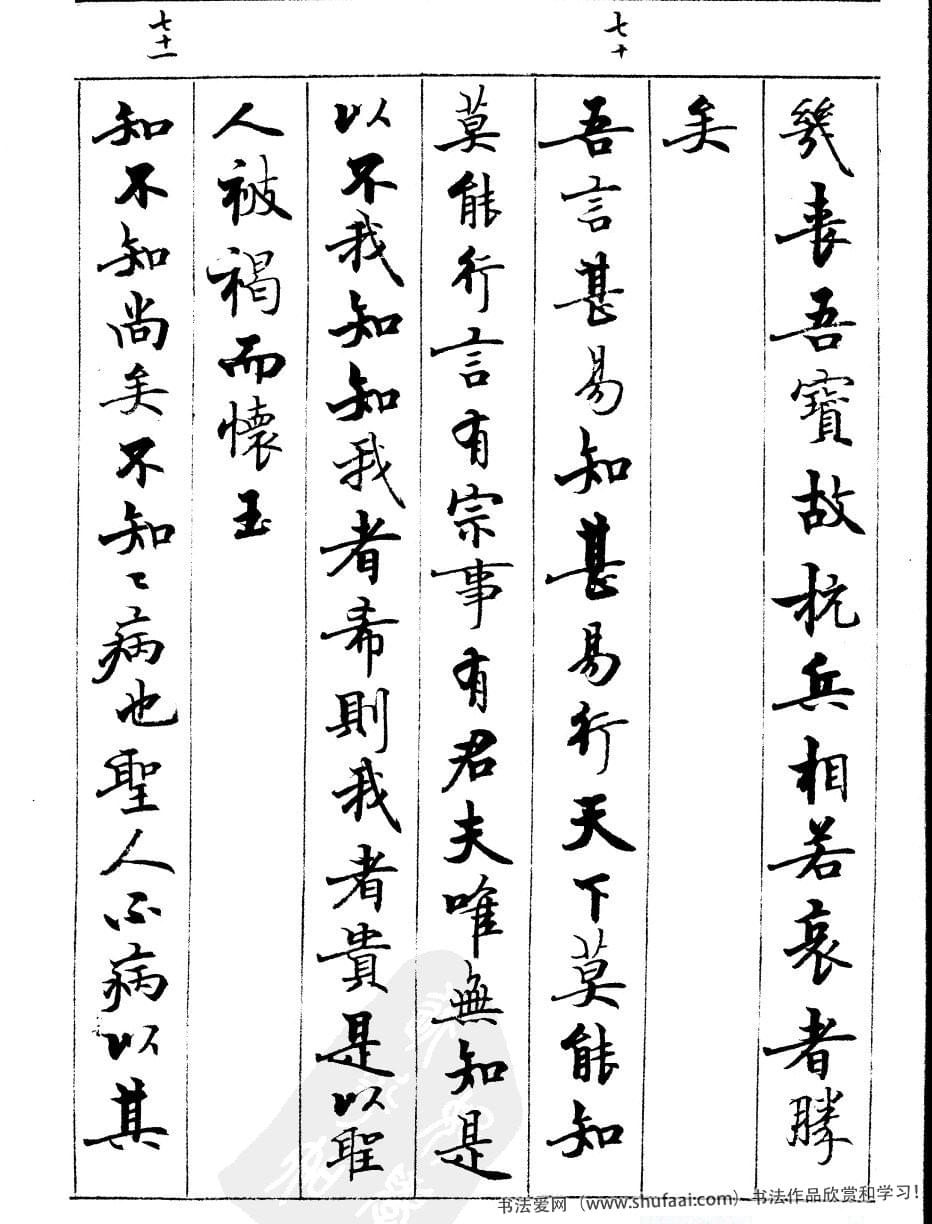 幾喪吾寶故抗兵相若哀者勝
矣
七十
吾言甚易知甚易行天下莫能知
莫能行言有宗事有君夫唯無知是
以不我知知我者希則我者貴是以聖
人被褐而懷玉
七十一
知不知尚矣不知〻病也聖人不病以其
书法爱网（www.shufaai.com）书法作品欣赏和学习！